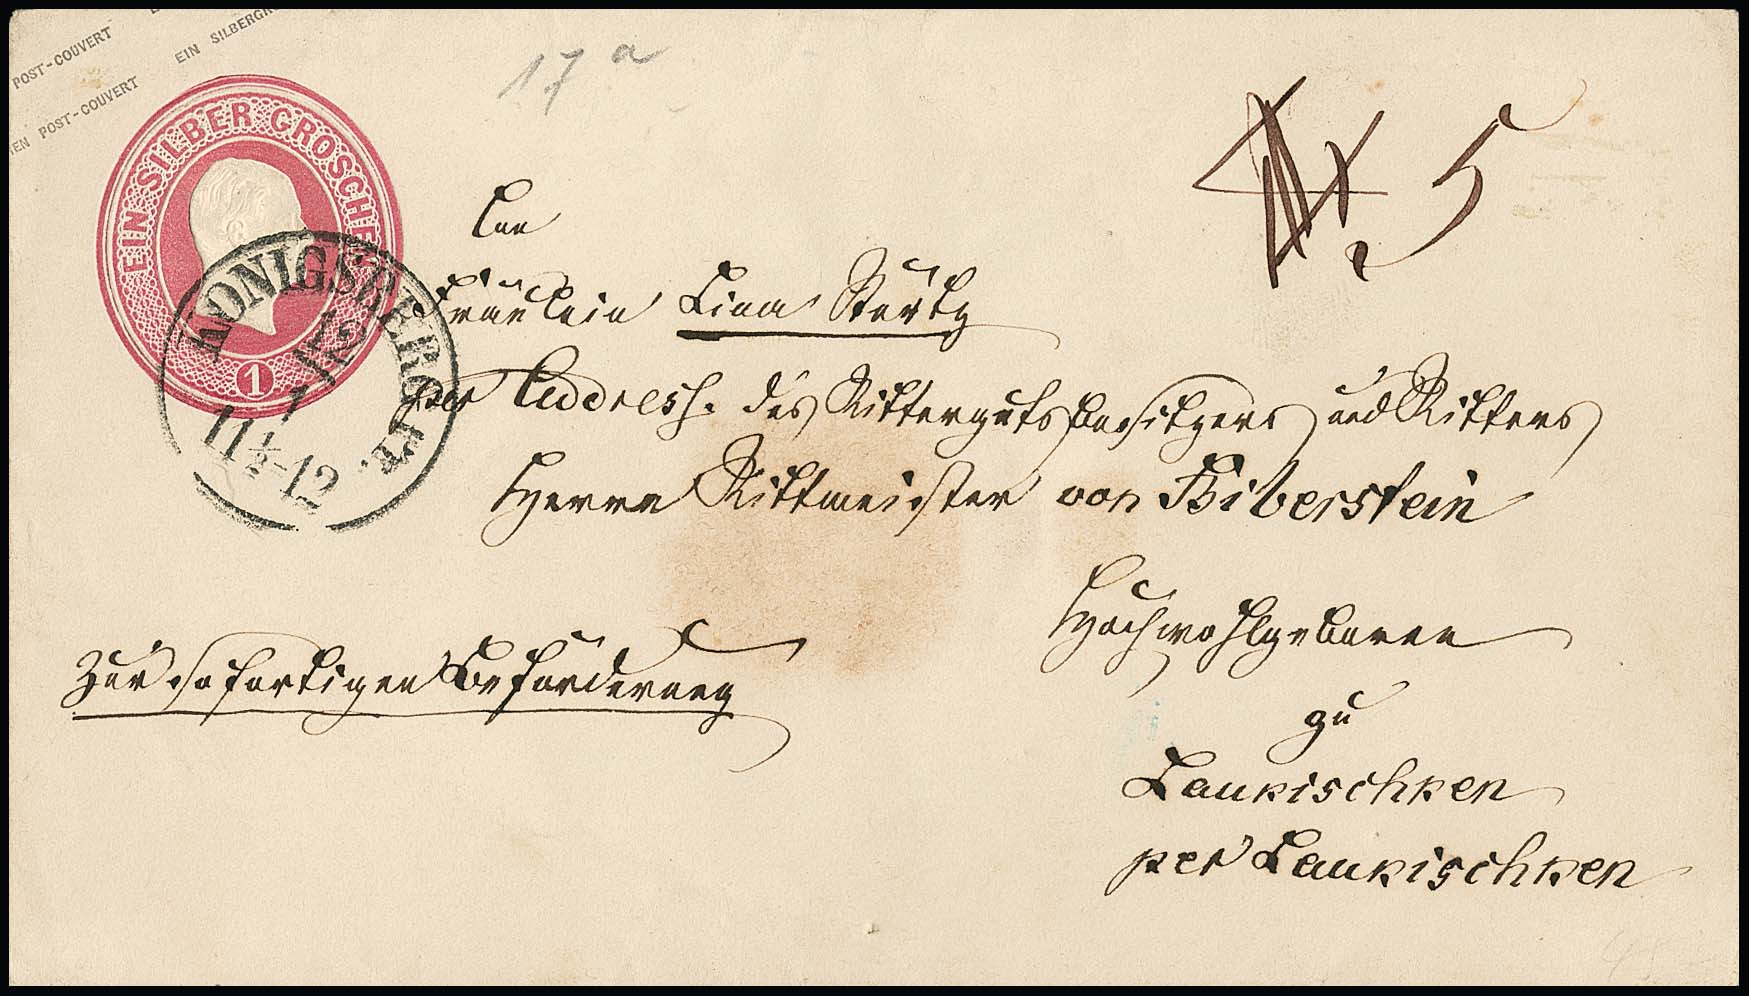 POST-COUVERT
EIN SILBERGR
EN POST-COUVERT
EIN SILBER GROSCHEN
1
KÖNIGSBERG PR.
1/12
11½-12
17 a
5
An
Fräulein Lina
per Address. des Rittergutsbesitzers und Ritters
Herrn Rittmeister von Biberstein
Hochwohlgeboren
zu
Laukischken
per Laukischken
Zur sofortigen Beförderung